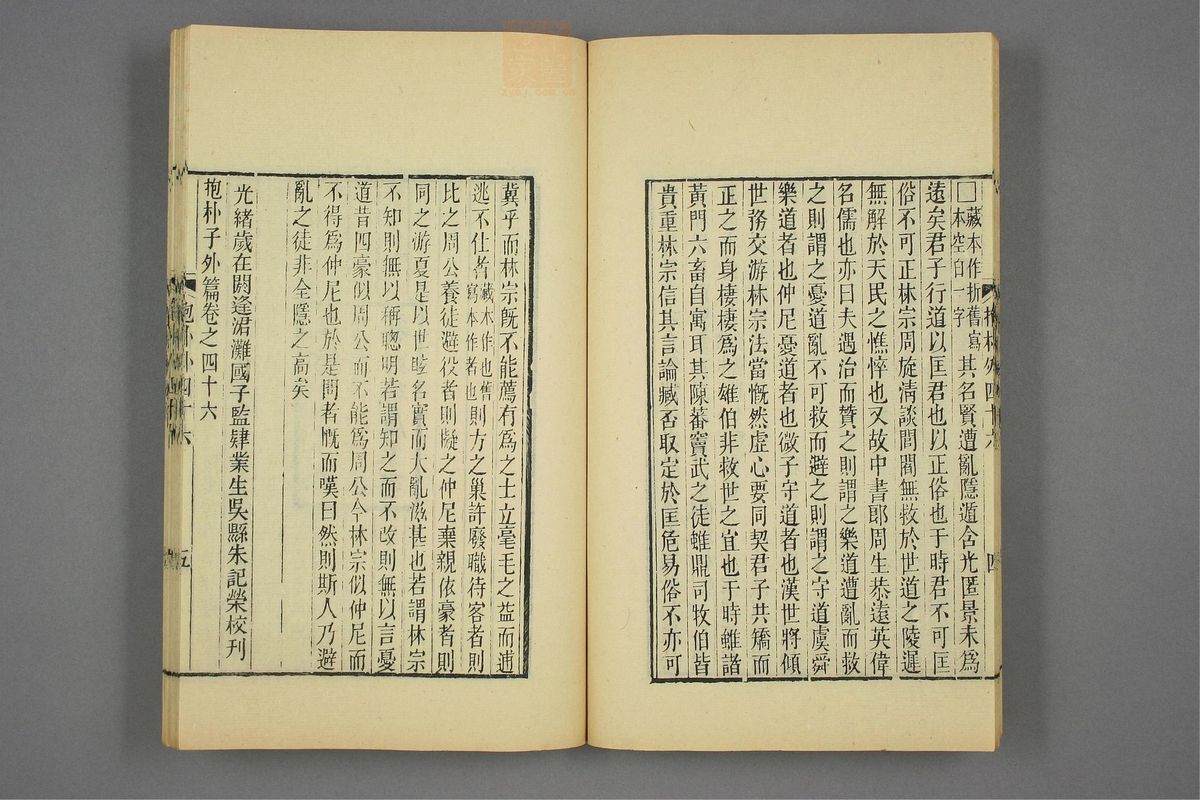 □藏本作折舊寫本空白一字其名賢遭亂隱遁含光匿景未爲
遠矣君子行道以匡君也以正俗也于時君不可匡
俗不可正林宗周旋淸談閭閻無救於世道之陵遲
無解於天民之憔悴也又故中書郎周生恭遠英偉
名儒也亦曰夫遇治而贊之則謂之樂道遭亂而救
之則謂之憂道亂不可救而避之則謂之守道虞舜
樂道者也仲尼憂道者也微子守道者也漢世將傾
世務交游林宗法當慨然虛心要同契君子共矯而
正之而身棲棲爲之雄伯非救世之宜也于時雖諸
黃門六畜自寓耳其陳蕃竇武之徒雖鼎司牧伯皆
貴重林宗信其言論臧否取定於匡危易俗不亦可
四
冀乎而林宗旣不能薦有爲之士立毫毛之益而逋
逃不仕者藏本作也舊寫本作者也則方之巢許廢職待客者則
比之周公養徒避役者則擬之仲尼棄親依豪者則
同之游夏是以世眩名實而大亂滋甚也若謂林宗
不知則無以稱聰明若謂知之而不改則無以言憂
道昔四豪似周公而不能爲周公今林宗似仲尼而
不得爲仲尼也於是問者慨而嘆曰然則斯人乃避
亂之徒非全隱之高矣
光緒歲在閼逢涒灘國子監肄業生吳縣朱記榮校刊
抱朴子外篇卷之四十六
五